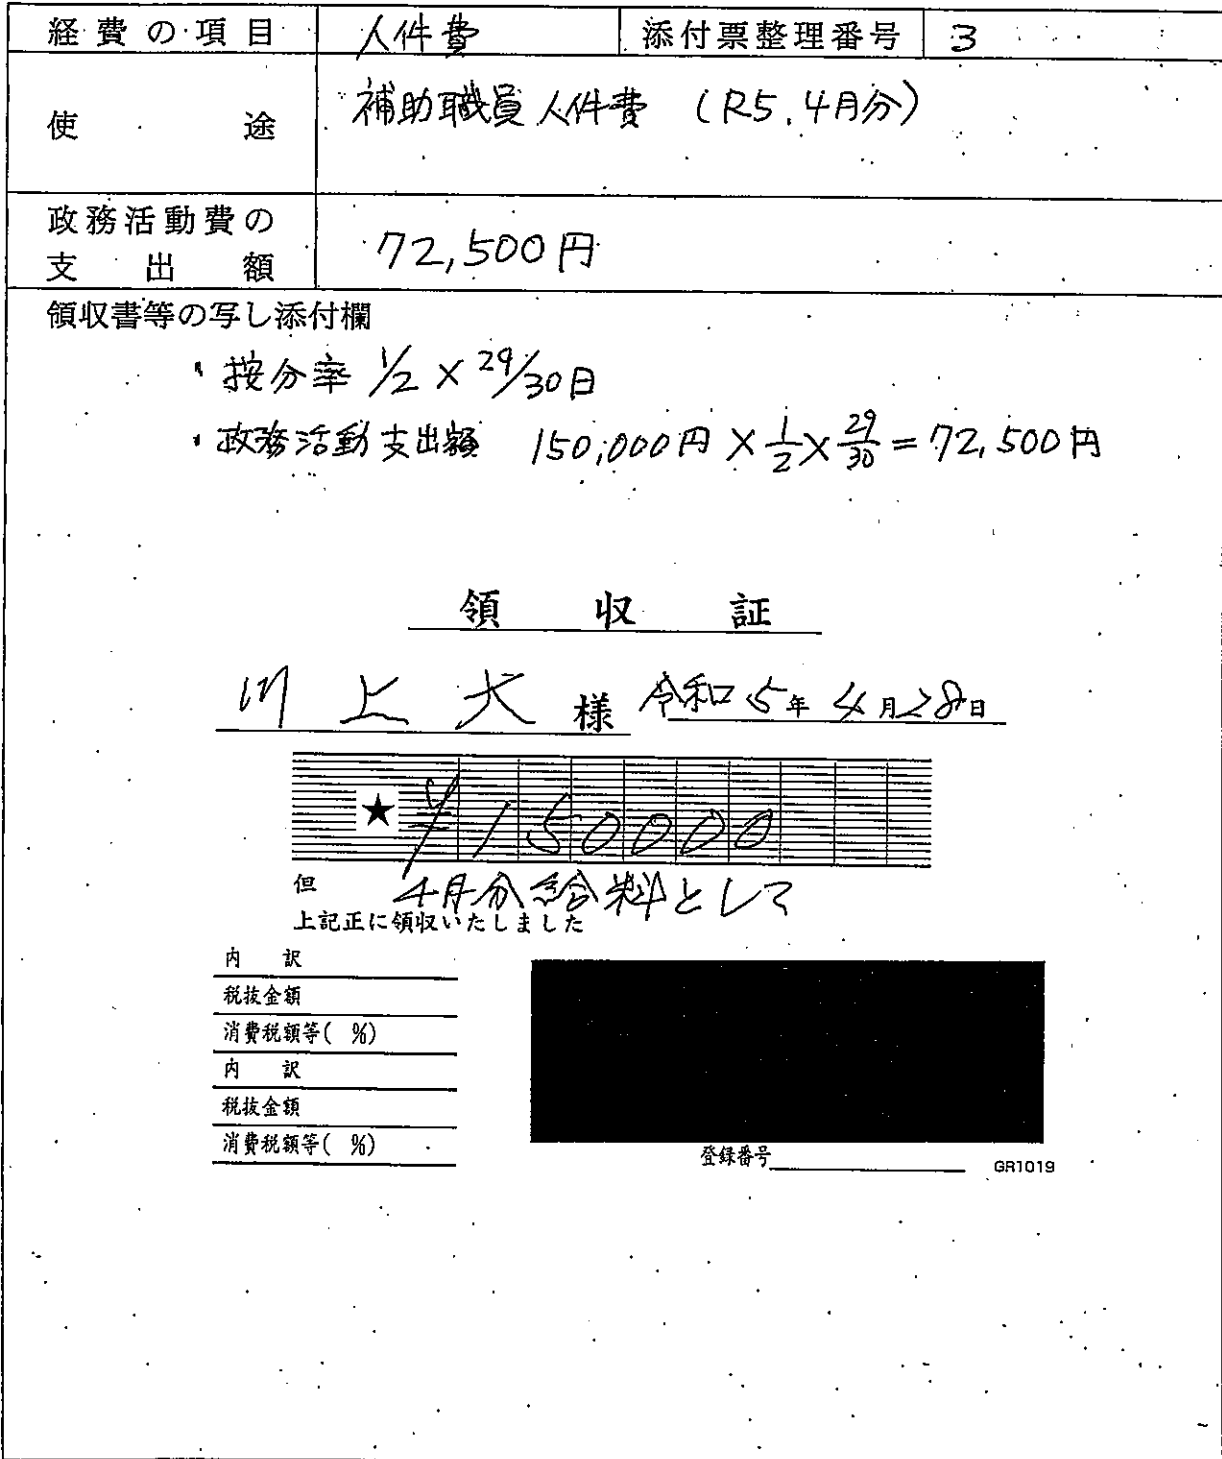 経費の項目 人件費 添付票整理番号 3
使途 補助職員人件費 (R5.4月分)
政務活動費の
支出額 72,500円
領収書等の写し添付欄
・按分率 1/2 × 29/30日
・政務活動支出額 150,000円 × 1/2 × 29/30 = 72,500円
領収証
川上大 様 令和5年4月28日
★ ¥150000
但 4月分給料として
上記正に領収いたしました
内訳
税抜金額
消費税額等( %)
内訳
税抜金額
消費税額等( %)
登録番号 GR1019